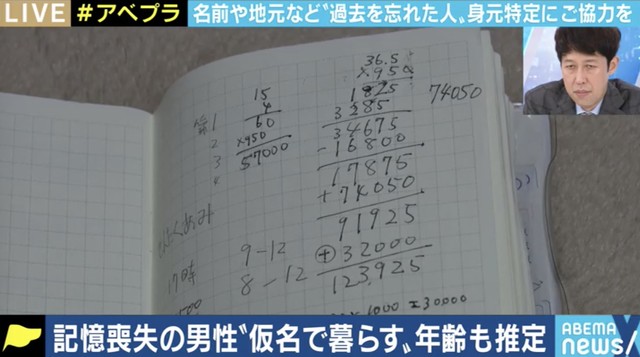 LIVE #アベプラ 名前や地元など“過去を忘れた人„身元特定にご協力を
36.5
×950
1825
3285
34675
-16800
17875
+74050
91925
+32000
123,925
74050
15
4
60
×950
57000
1
2
3
4
9-12
8-12
17時
×1000
30000
記憶喪失の男性“仮名で暮らす„年齢も推定
ABEMA
news